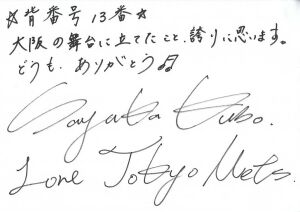 ☆背番号 13番☆
大阪の舞台に立てたこと、誇りに思います。
どうも、ありがとう♫
Sayaka Kubo.
Love Tokyo Mets.